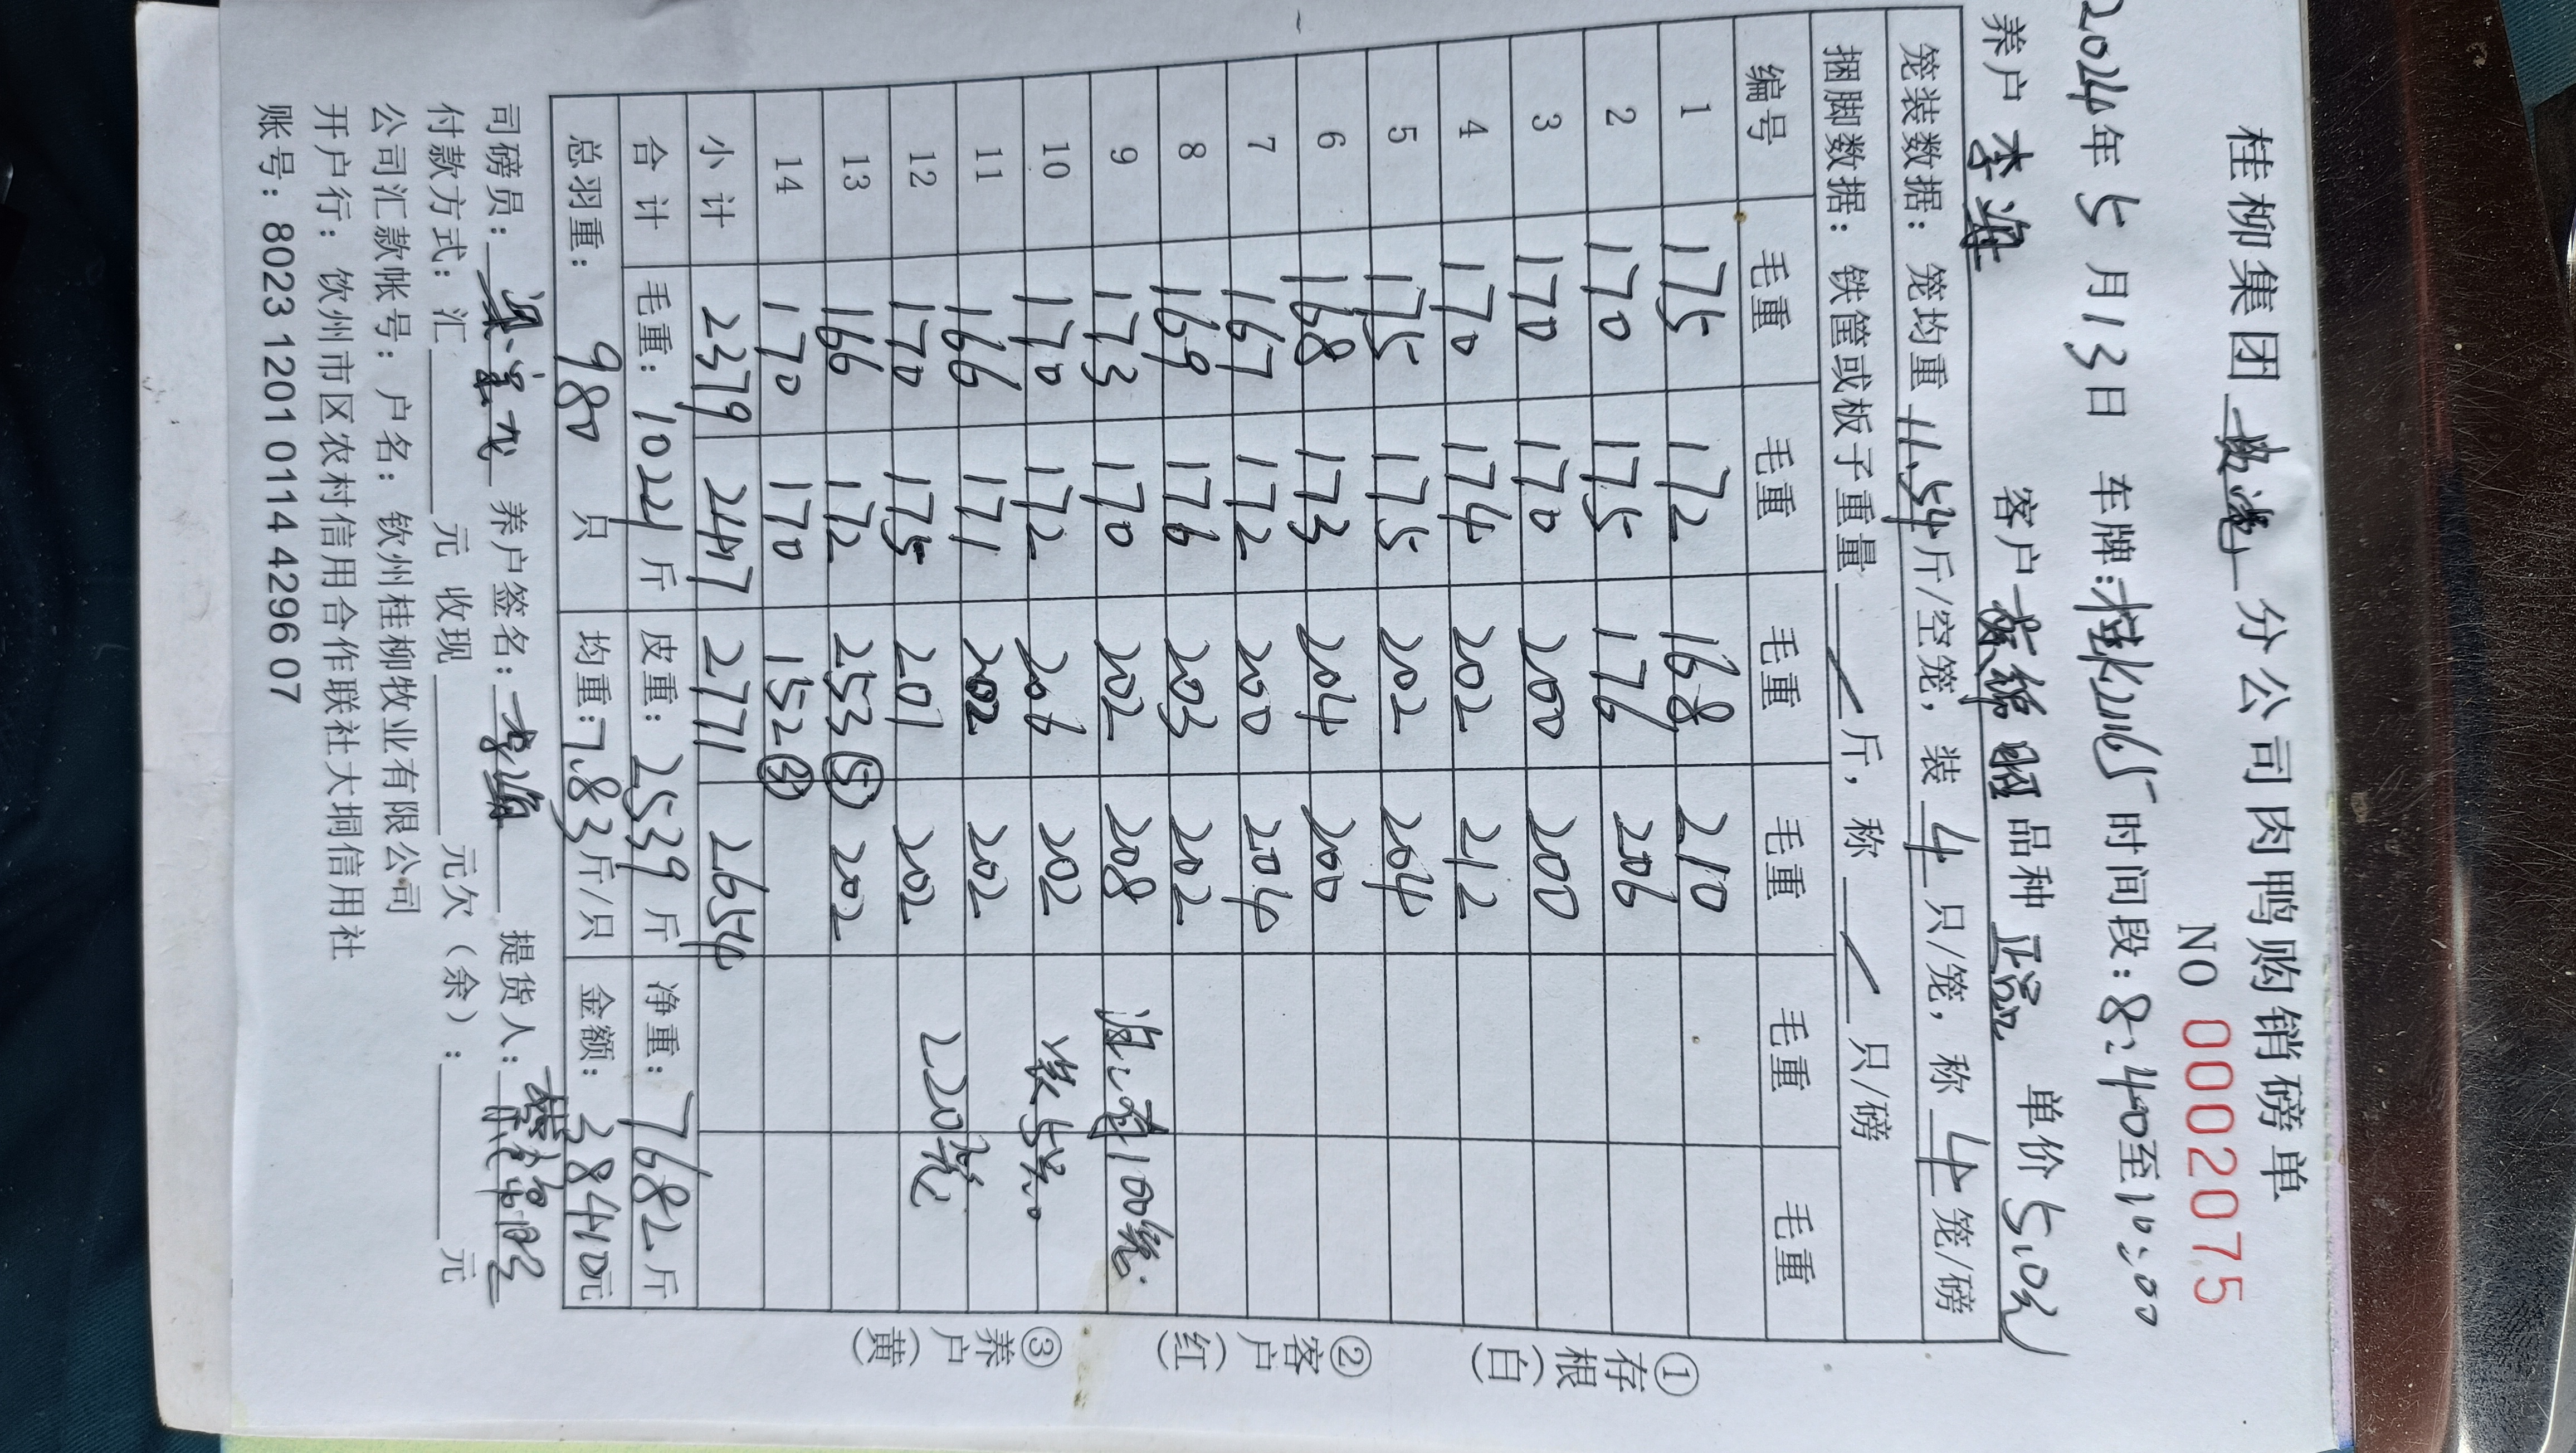 桂柳集团 分公司肉鸭购销磅单
NO 0002075
2024年5月13日 车牌: 时间段：8:40至10:00
养户 李 客户 品种 单价 5.0元
笼装数据：笼均重 11.54 斤/空笼，装 4 只/笼，称 4 笼/磅
捆脚数据：铁筐或板子重量 / 斤，称 / 只/磅
编号 毛重 毛重 毛重 毛重 毛重 毛重
1 175 172 168 210
2 170 175 176 206
3 170 170 200 200
4 170 174 202 212
5 175 175 202 204
6 168 173 204 200
7 167 172 200 204
8 169 176 203 202
9 173 170 202 208 100
10 170 172 206 202 装5只。
11 166 171 202 202
12 170 175 201 202 220笼
13 166 172 253⑤ 202
14 170 170 152③
小计 2379 2417 2771 2654
合计 毛重：10221斤 皮重：2539斤 净重：7682斤
总羽重： 980 只 均重：7.83斤/只 金额：38410元
司磅员： 养户签名：李 提货人：
付款方式：汇 元 收现 元欠（余）： 元
公司汇款帐号：户名：钦州桂柳牧业有限公司
开户行：钦州市区农村信用合作联社大垌信用社
账号：8023 1201 0114 4296 07
①存根（白）
②客户（红）
③养户（黄）